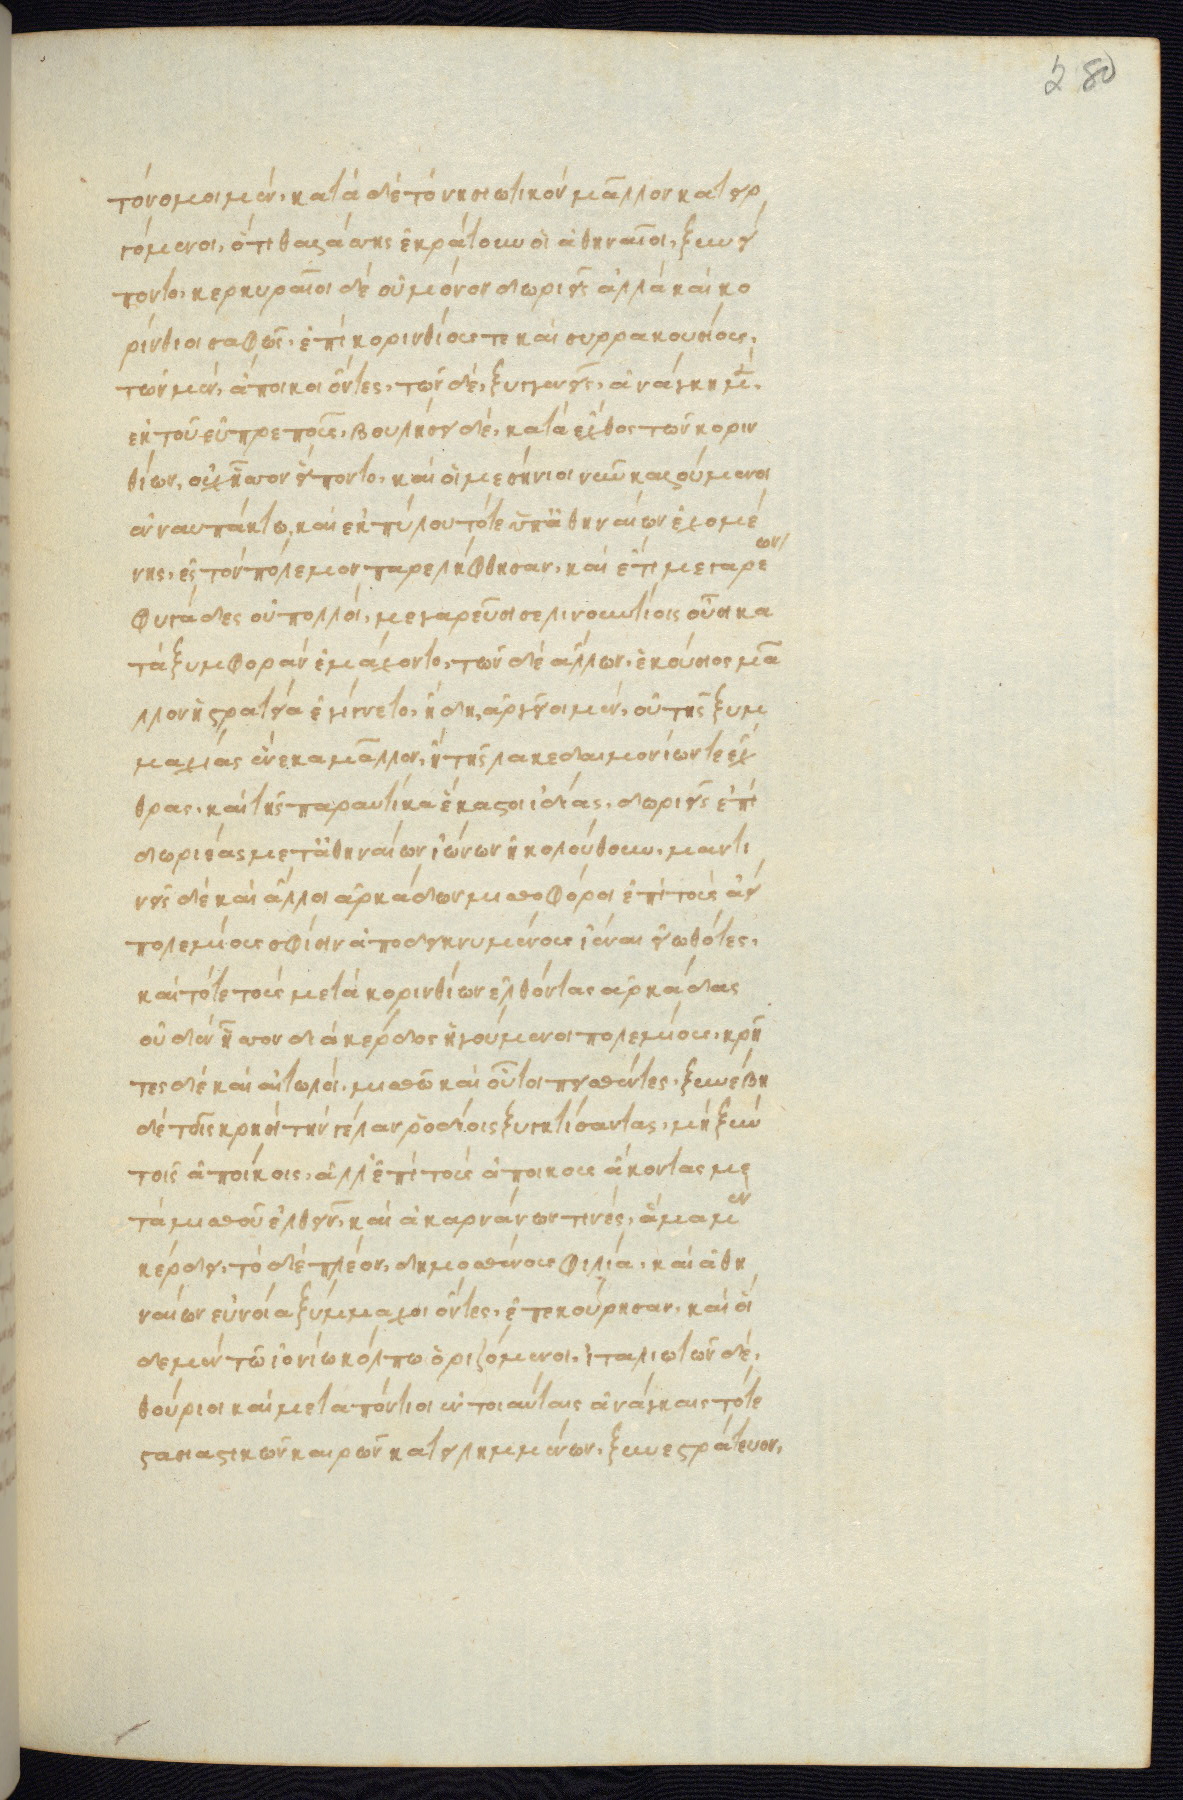 τόνομοι μὲν, κατὰ δὲ τὸ νησιωτικὸν μᾶλλον κατειρ
γόμενοι, ὅτι θαλάσσης ἐκράτουν οἱ ἀθηναῖοι, ξυνεί
ποντο, κερκυραῖοι δὲ οὐ μόνον δωριεῖς ἀλλὰ καὶ κο
ρίνθιοι σαφῶς, ἐπὶ κορινθίους τε καὶ συρρακουσίους,
τῶν μὲν, ἄποικοι ὄντες, τῶν δὲ, ξυγγενεῖς, ἀνάγκη μὲν,
ἐκ τοῦ εὐπρεποῦς, βουλήσει δὲ, κατὰ ἔχθος τῶν κοριν
θίων, οὐχ ἧσσον εἵποντο, καὶ οἱ μεσήνιοι νῦν καλούμενοι
ἐν ναυπάκτω, καὶ ἐκ πύλου τότε ὑπ' ἀθηναίων ἐχομέ
νης, ἐς τὸν πόλεμον παρελήφθησαν, καὶ ἔτι μεγαρέων
φυγάδες οὐ πολλοὶ, μεγαρεῦσι σελινουντίοις οὖσι κα
τὰ ξυμφορὰν ἐμάχοντο, τῶν δὲ ἄλλων, ἑκούσιος μᾶ
λλον ἡ στρατεία ἐγίγνετο, ἤδη, ἀργεῖοι μὲν, οὐ τῆς ξυμ
μαχίας ἕνεκα μᾶλλον, ἢ τῆς λακεδαιμονίων τε ἔχ
θρας, καὶ τῆς παραυτίκα ἕκαστοι ἰδίας, δωριεῖς ἐπὶ
δωριέας μετ' ἀθηναίων ἰώνων ἠκολούθουν, μαντι
νεῖς δὲ καὶ ἄλλοι ἀρκάδων μισθοφόροι ἐπὶ τοὺς ἀεὶ
πολεμίους σφίσιν ἀποδεικνυμένους ἰέναι εἰωθότες,
καὶ τότε τοὺς μετὰ κορινθίων ἐλθόντας ἀρκάδας
οὐδὲν ἧσσον διὰ κέρδος ἡγούμενοι πολεμίους, κρῆ
τες δὲ καὶ αἰτωλοὶ, μισθῶ καὶ οὗτοι πεισθέντες, ξυνέβη
δὲ τοῖς κρησὶ τὴν γέλαν ῥοδίοις ξυγκτίσαντας, μὴ ξὺν
τοῖς ἀποίκοις, ἀλλ' ἐπὶ τοὺς ἀποίκους ἄκοντας με
τὰ μισθοῦ ἐλθεῖν, καὶ ἀκαρνάνων τινὲς, ἅμα μὲν
κέρδει, τὸ δὲ πλέον, δημοσθένους φιλία, καὶ ἀθη
ναίων εὐνοία ξύμμαχοι ὄντες, ἐπεκούρησαν, καὶ οἱ
δε μὲν τῶ ἰονίω κόλπω ὁριζόμενοι, ἰταλιωτῶν δὲ,
θούριοι καὶ μεταπόντιοι ἐν τοιαύταις ἀνάγκαις τότε
στασιαστικῶν καιρῶν κατειλημμένων, ξυνεστράτευον,
280